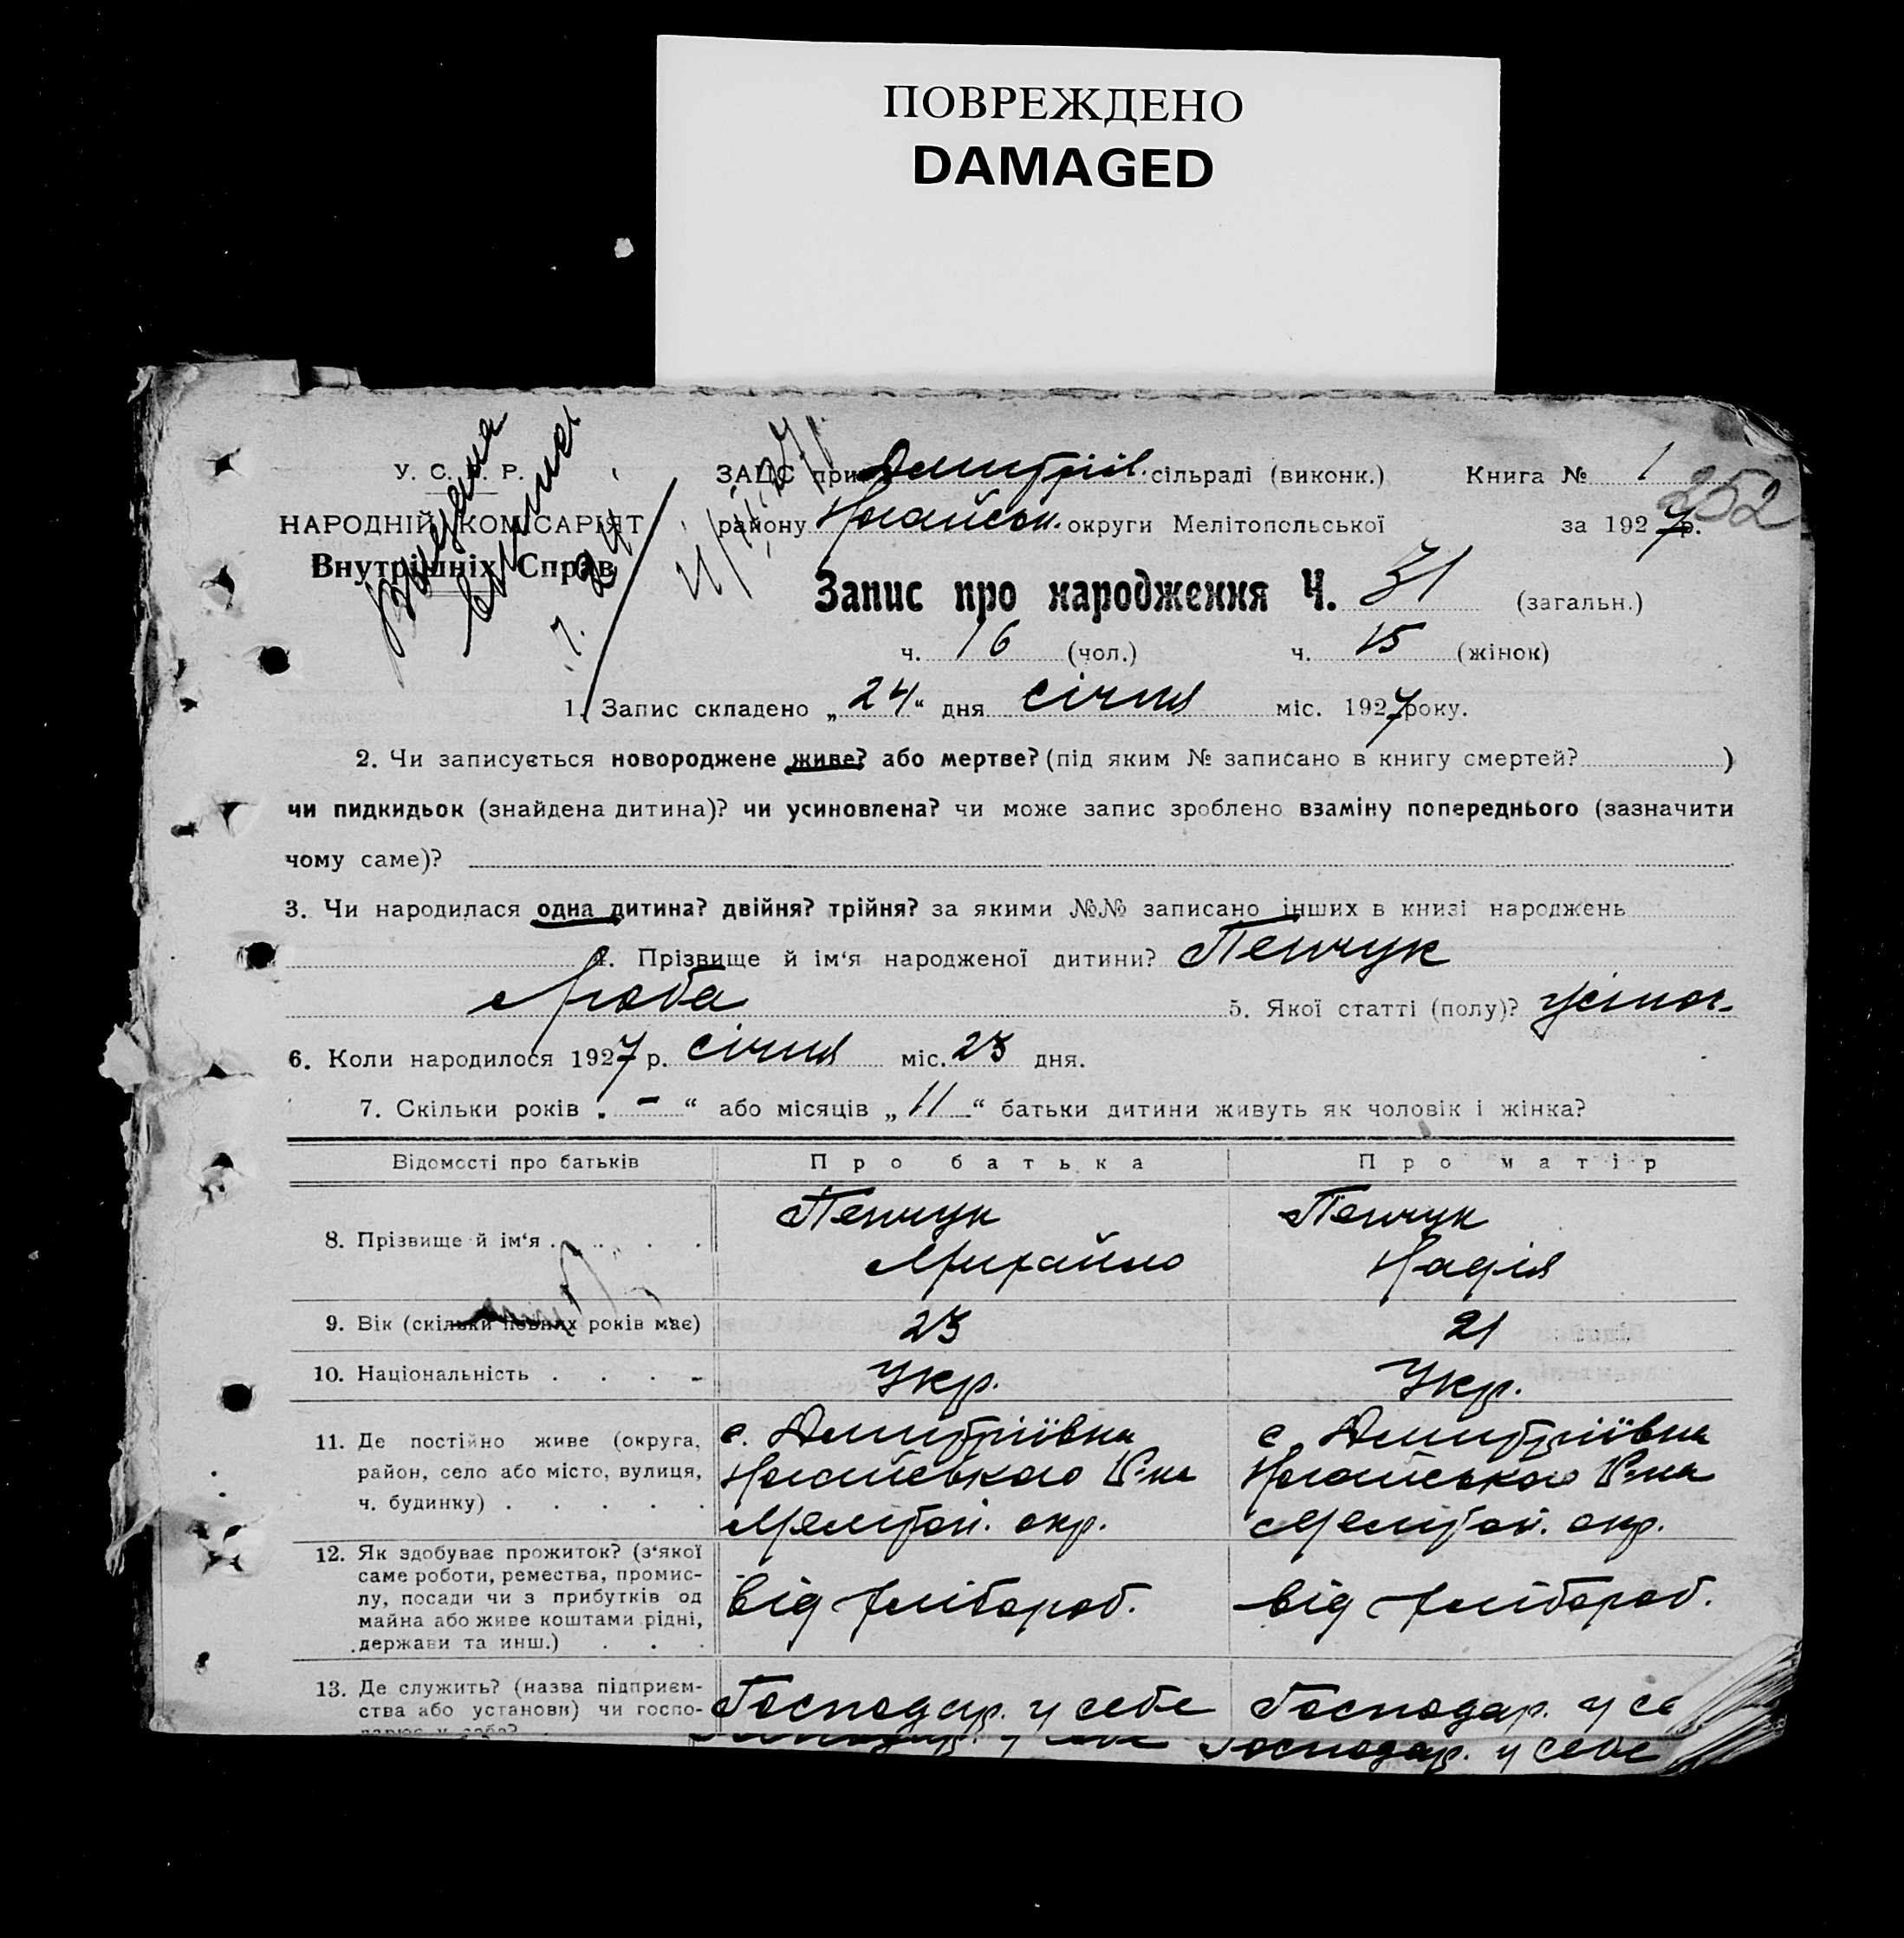 ПОВРЕЖДЕНО
DAMAGED
У. С. Р. Р.
НАРОДНІЙ КОМІСАРІЯТ
Внутрішніх Справ
ЗАЦС при Дмитріїв. сільраді (виконк.) Книга № 1
252
району Ногайськ. округи Мелітопольської за 1927 р.
Запис про народження Ч. 31 (загальн.)
ч. 16 (чол.) ч. 15 (жінок)
1. Запис складено „24“ дня січня міс. 1927 року.
2. Чи записується новороджене живе? або мертве? (під яким № записано в книгу смертей? )
чи пидкидьок (знайдена дитина)? чи усиновлена? чи може запис зроблено взаміну попереднього (зазначити
чому саме)?
3. Чи народилася одна дитина? двійня? трійня? за якими №№ записано інших в книзі народжень
4. Прізвище й ім‘я народженої дитини? Пенчук
Люба 5. Якої статті (полу)?
6. Коли народилося 1927 р. січня міс. 23 дня.
7. Скільки років „ - “ або місяців „ 11 “ батьки дитини живуть як чоловік і жінка?
Відомості про батьків Про батька Про матір
8. Прізвище й ім‘я . . . . . Пенчук Пенчук
Михайло Надія
9. Вік (скільки повних років має) 23 21
10. Національність . . . . Укр. Укр.
11. Де постійно живе (округа, с. Дмитріївка с. Дмитріївка
район, село або місто, вулиця, Ногайського Р-на Ногайського Р-на
ч. будинку) . . . . . Мелітоп. окр. Мелітоп. окр.
12. Як здобуває прожиток? (з‘якої
саме роботи, ремества, промис-
лу, посади чи з прибутків од від хлібороб. від хлібороб.
майна або живе коштами рідні,
держави та инш.) . . .
13. Де служить? (назва підприєм-
ства або установи) чи госпо- Господар. у себе Господар. у се
дарює у себе? .
Господар. у себе Господар. у себе